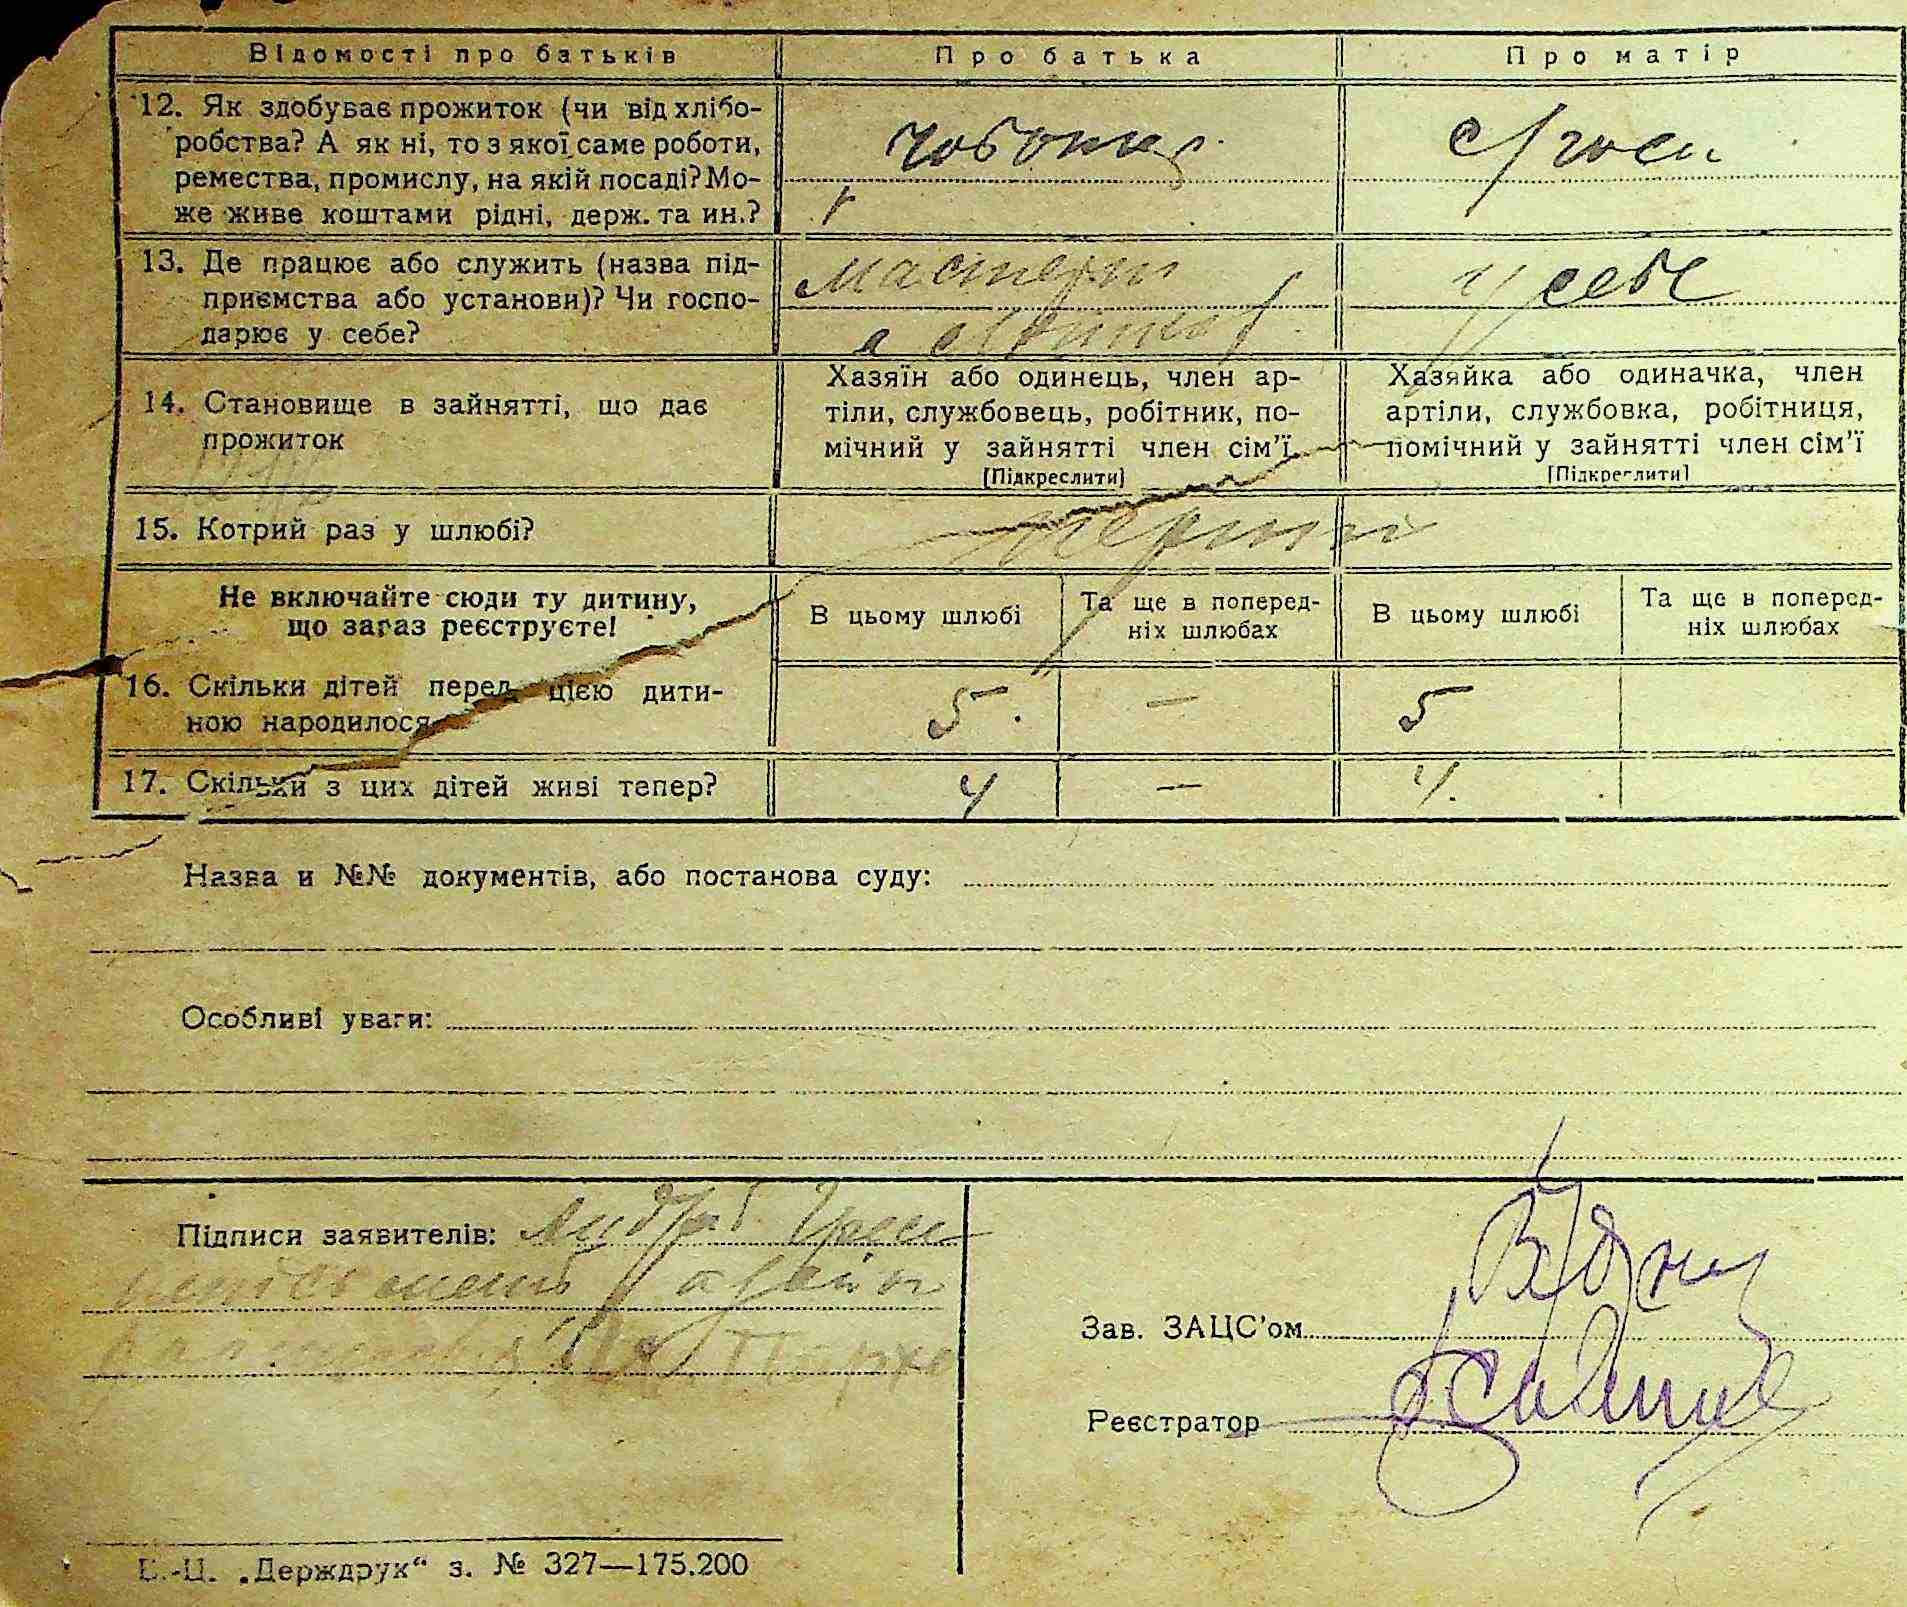 Відомості про батьків Про батька Про матір
12. Як здобуває прожиток (чи від хлібо-
робства? А як ні, то з якої саме роботи,
ремества, промислу, на якій посаді? Мо-
же живе коштами рідні, держ. та ин.?
с/госп
13. Де працює або служить (назва під-
приємства або установи)? Чи госпо-
дарює у себе?
у себе
14. Становище в зайнятті, що дає
прожиток
Хазяїн або одинець, член ар-
тіли, службовець, робітник, по-
мічний у зайнятті член сім'ї
[Підкреслити]
Хазяйка або одиначка, член
артіли, службовка, робітниця,
помічний у зайнятті член сім'ї
[Підкреслити]
15. Котрий раз у шлюбі?
перший
Не включайте сюди ту дитину,
що зараз реєструєте!
В цьому шлюбі
Та ще в поперед-
ніх шлюбах
В цьому шлюбі
Та ще в поперед-
ніх шлюбах
16. Скільки дітей перед цією дити-
ною народилося
5. — 5
17. Скільки з цих дітей живі тепер?
4 — 4.
Назва и №№ документів, або постанова суду:
Особливі уваги:
Підписи заявителів:
Зав. ЗАЦС'ом
Реєстратор
„Держдрук“ з. № 327—175.200